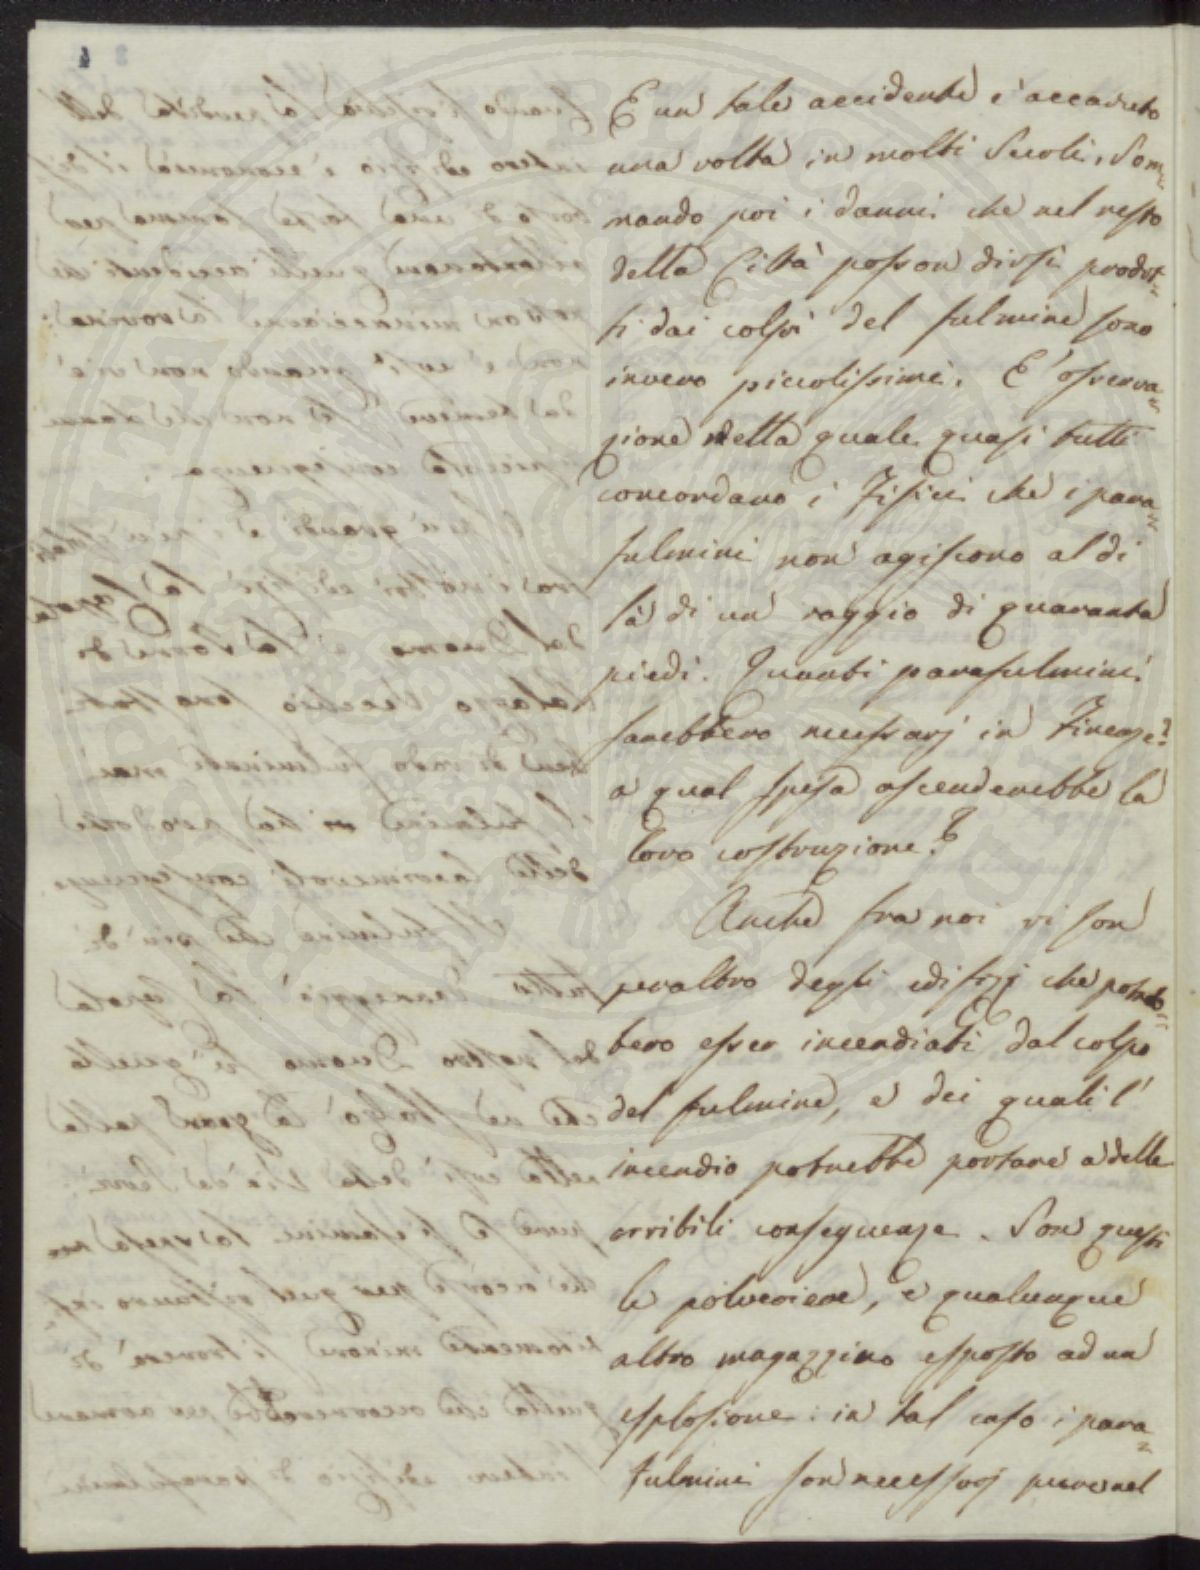 E un tale accidente è accaduto
una volta in molti Secoli. Som=
mando poi i danni che nel resto
della Città posson dirsi prodot=
ti dai colpi del fulmine sono
invero piccolissimi. E' osserva=
zione nella quale quasi tutti
concordano i Fisici che i para=
fulmini non agiscono al di
là di un raggio di quaranta
piedi. Quanti parafulmini
sarebbero necessarj in Firenze?
a qual spesa ascenderebbe la
loro costruzione?
Anche fra noi vi son
peraltro degli edifizj che potreb=
bero esser incendiati dal colpo
del fulmine, e dei quali l'
incendio potrebbe portare a delle
orribili conseguenze. Son questi
le polveriere, e qualunque
altro magazzino esposto ad un'
esplosione: in tal caso i para=
fulmini son necessarj pure nel